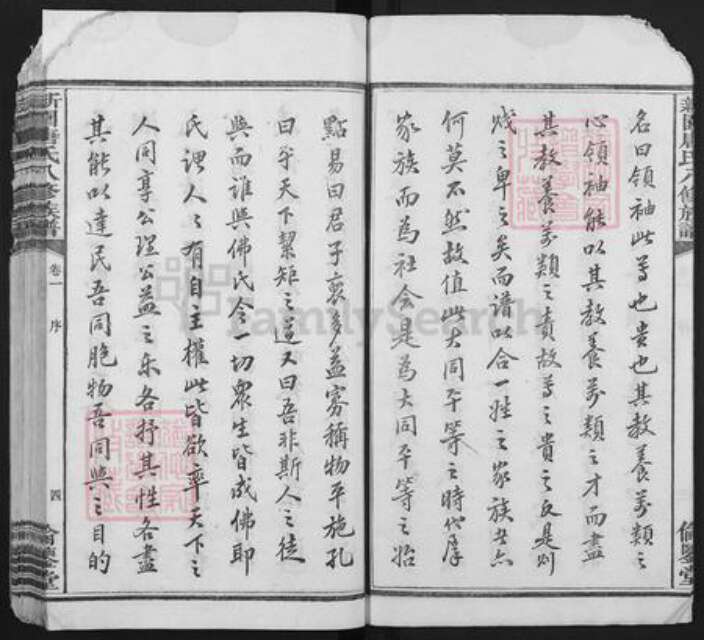 名曰領袖此尊也貴也其教養萬類之
心領袖能以其教養萬類之才而盡
其教養萬類之責故尊之貴之反是則
賤之卑之矣而譜以合一姓之家族者亦
何莫不然故值此大同平等之時代序
家族而為社会是為大同平等之始
點易曰君子裒多益寡稱物平施孔
曰平天下絜矩之道又曰吾非斯人之徒
與而誰與佛氏令一切衆生皆成佛耶
氏謂人人有自主權此皆欲率天下之
人同享公理公益之乐各抒其性各盡
其能以達民吾同胞物吾同與之目的
八修族譜
卷一
序
四
倫鑒堂
FamilySearch